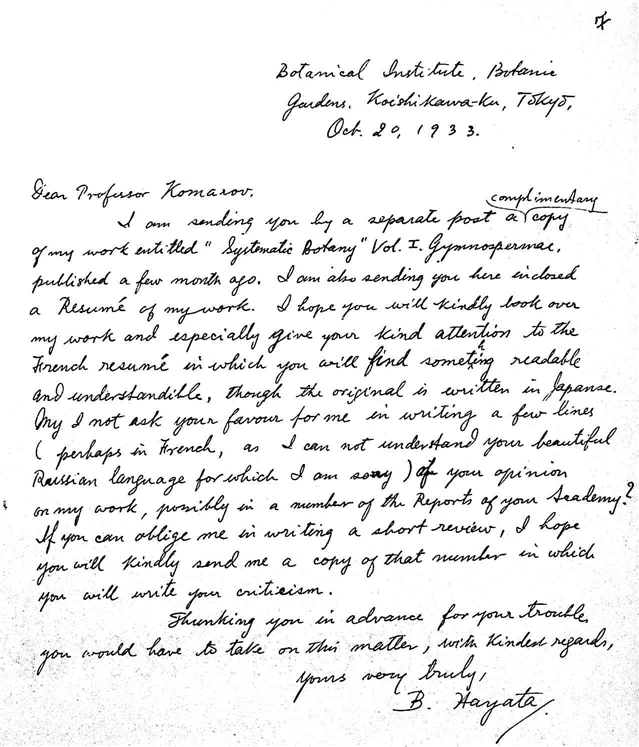 7
Botanical Institute, Botanic
Gardens, Koishikawa-Ku, Tōkyō,
Oct. 20, 1933.
Dear Professor Komarov.
I am sending you by a separate post a complimentary copy
of my work entitled "Systematic Botany" Vol. I. Gymnospermae,
published a few month ago. I am also sending you here inclosed
a Resumé of my work. I hope you will kindly look over
my work and especially give your kind attention to the
French resumé in which you will find somethig readable
and understandible, though the original is written in Japanse.
My I not ask your favour for me in writing a few lines
( perhaps in French, as I can not understand your beautiful
Russian language for which I am sory ) of your opinion
on my work, possibly in a number of the Reports of your Academy?
If you can oblige me in writing a short review, I hope
you will kindly send me a copy of that number in which
you will write your criticism.
Thunking you in advance for your trouble
you would have to take on this matter, with kindest regards,
yours very truly,
B. Hayata